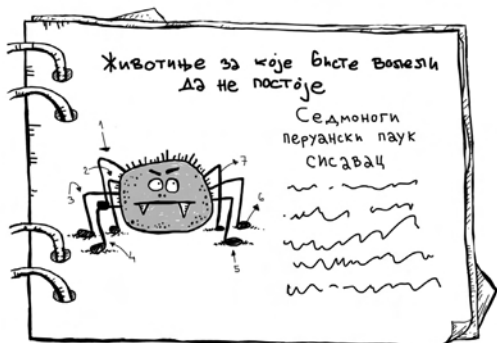 Животиње за које бисте волели
да не постоје
Седмоноги
перуански паук
сисавац
1
2
3
4
5
6
7